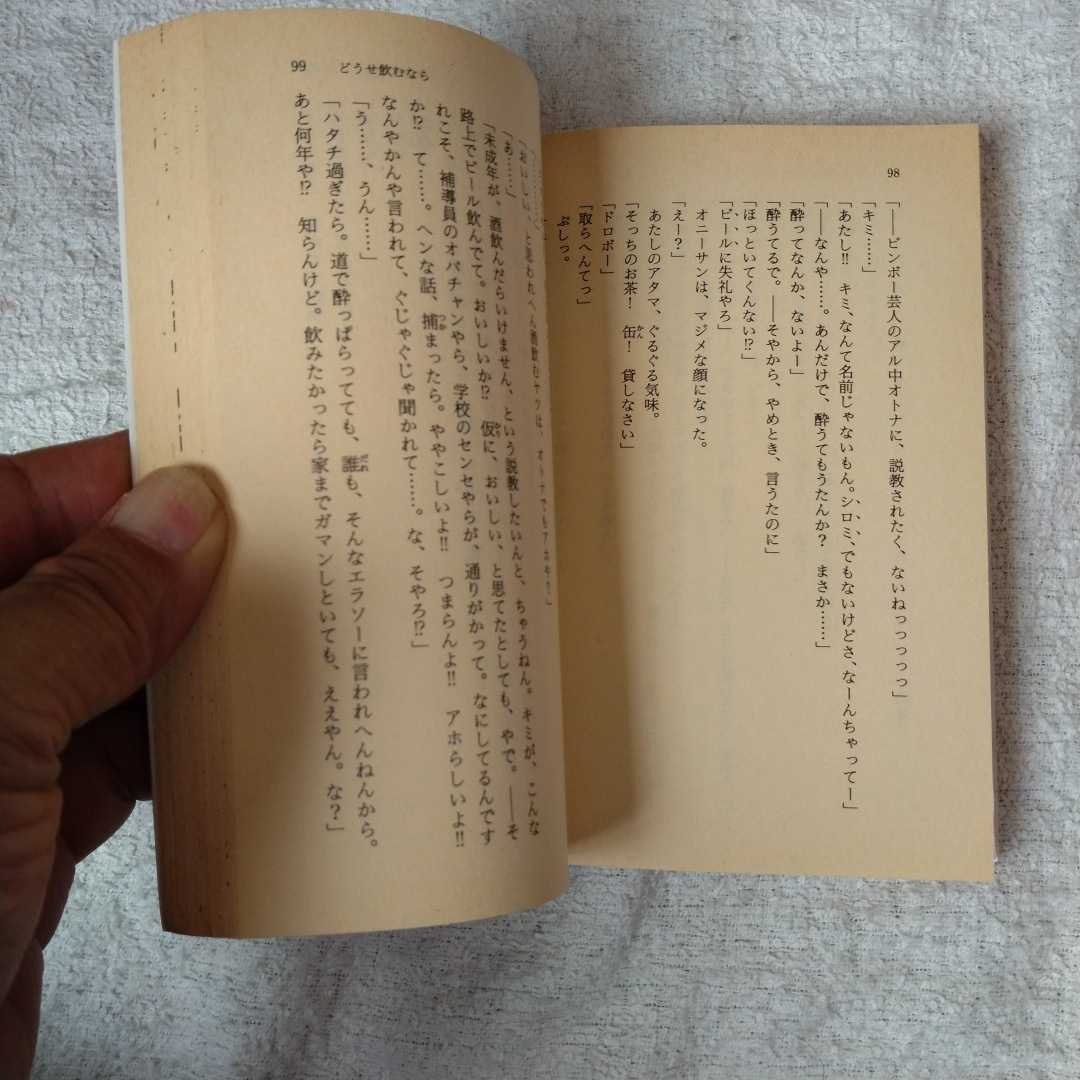 98
「――ビンボー芸人のアル中オトナに、説教されたく、ないねっっっっっ」
「キミ……」
「あたし!! キミ、なんて名前じゃないもん。シロミ、でもないけどさ、なーんちゃってー」
「――なんや……。あんだけで、酔うてもうたんか? まさか……」
「酔ってなんか、ないよー」
「酔うてるで。――そやから、やめとき、言うたのに」
「ほっといてくんない!?」
「ビールに失礼やろ」
オニーサンは、マジメな顔になった。
「えー?」
あたしのアタマ、ぐるぐる気味。
「そっちのお茶! 缶! 貸しなさい」
「ドロボー」
「取らへんてっ」
ぷしっ。
99 どうせ飲むなら
「おいしい、と思われへん酒飲むヤツは、オトナでもアホや!」
「あ……」
「未成年が、酒飲んだらいけません、という説教したいんと、ちゃうねん。キミが、こんな
路上でビール飲んでて。おいしいか!? 仮に、おいしい、と思てたとしても、やで。――そ
れこそ、補導員のオバチャンやら、学校のセンセやらが、通りがかって。なにしてるんです
か!? て……。ヘンな話、捕まったら。ややこしいよ!! つまらんよ!! アホらしいよ!!
なんやかんや言われて、ぐじゃぐじゃ聞かれて……。な、そやろ!?」
「う……、うん……」
「ハタチ過ぎたら。道で酔っぱらってても、誰も、そんなエラソーに言われへんねんから。
あと何年や!? 知らんけど。飲みたかったら家までガマンしといても、ええやん。な?」